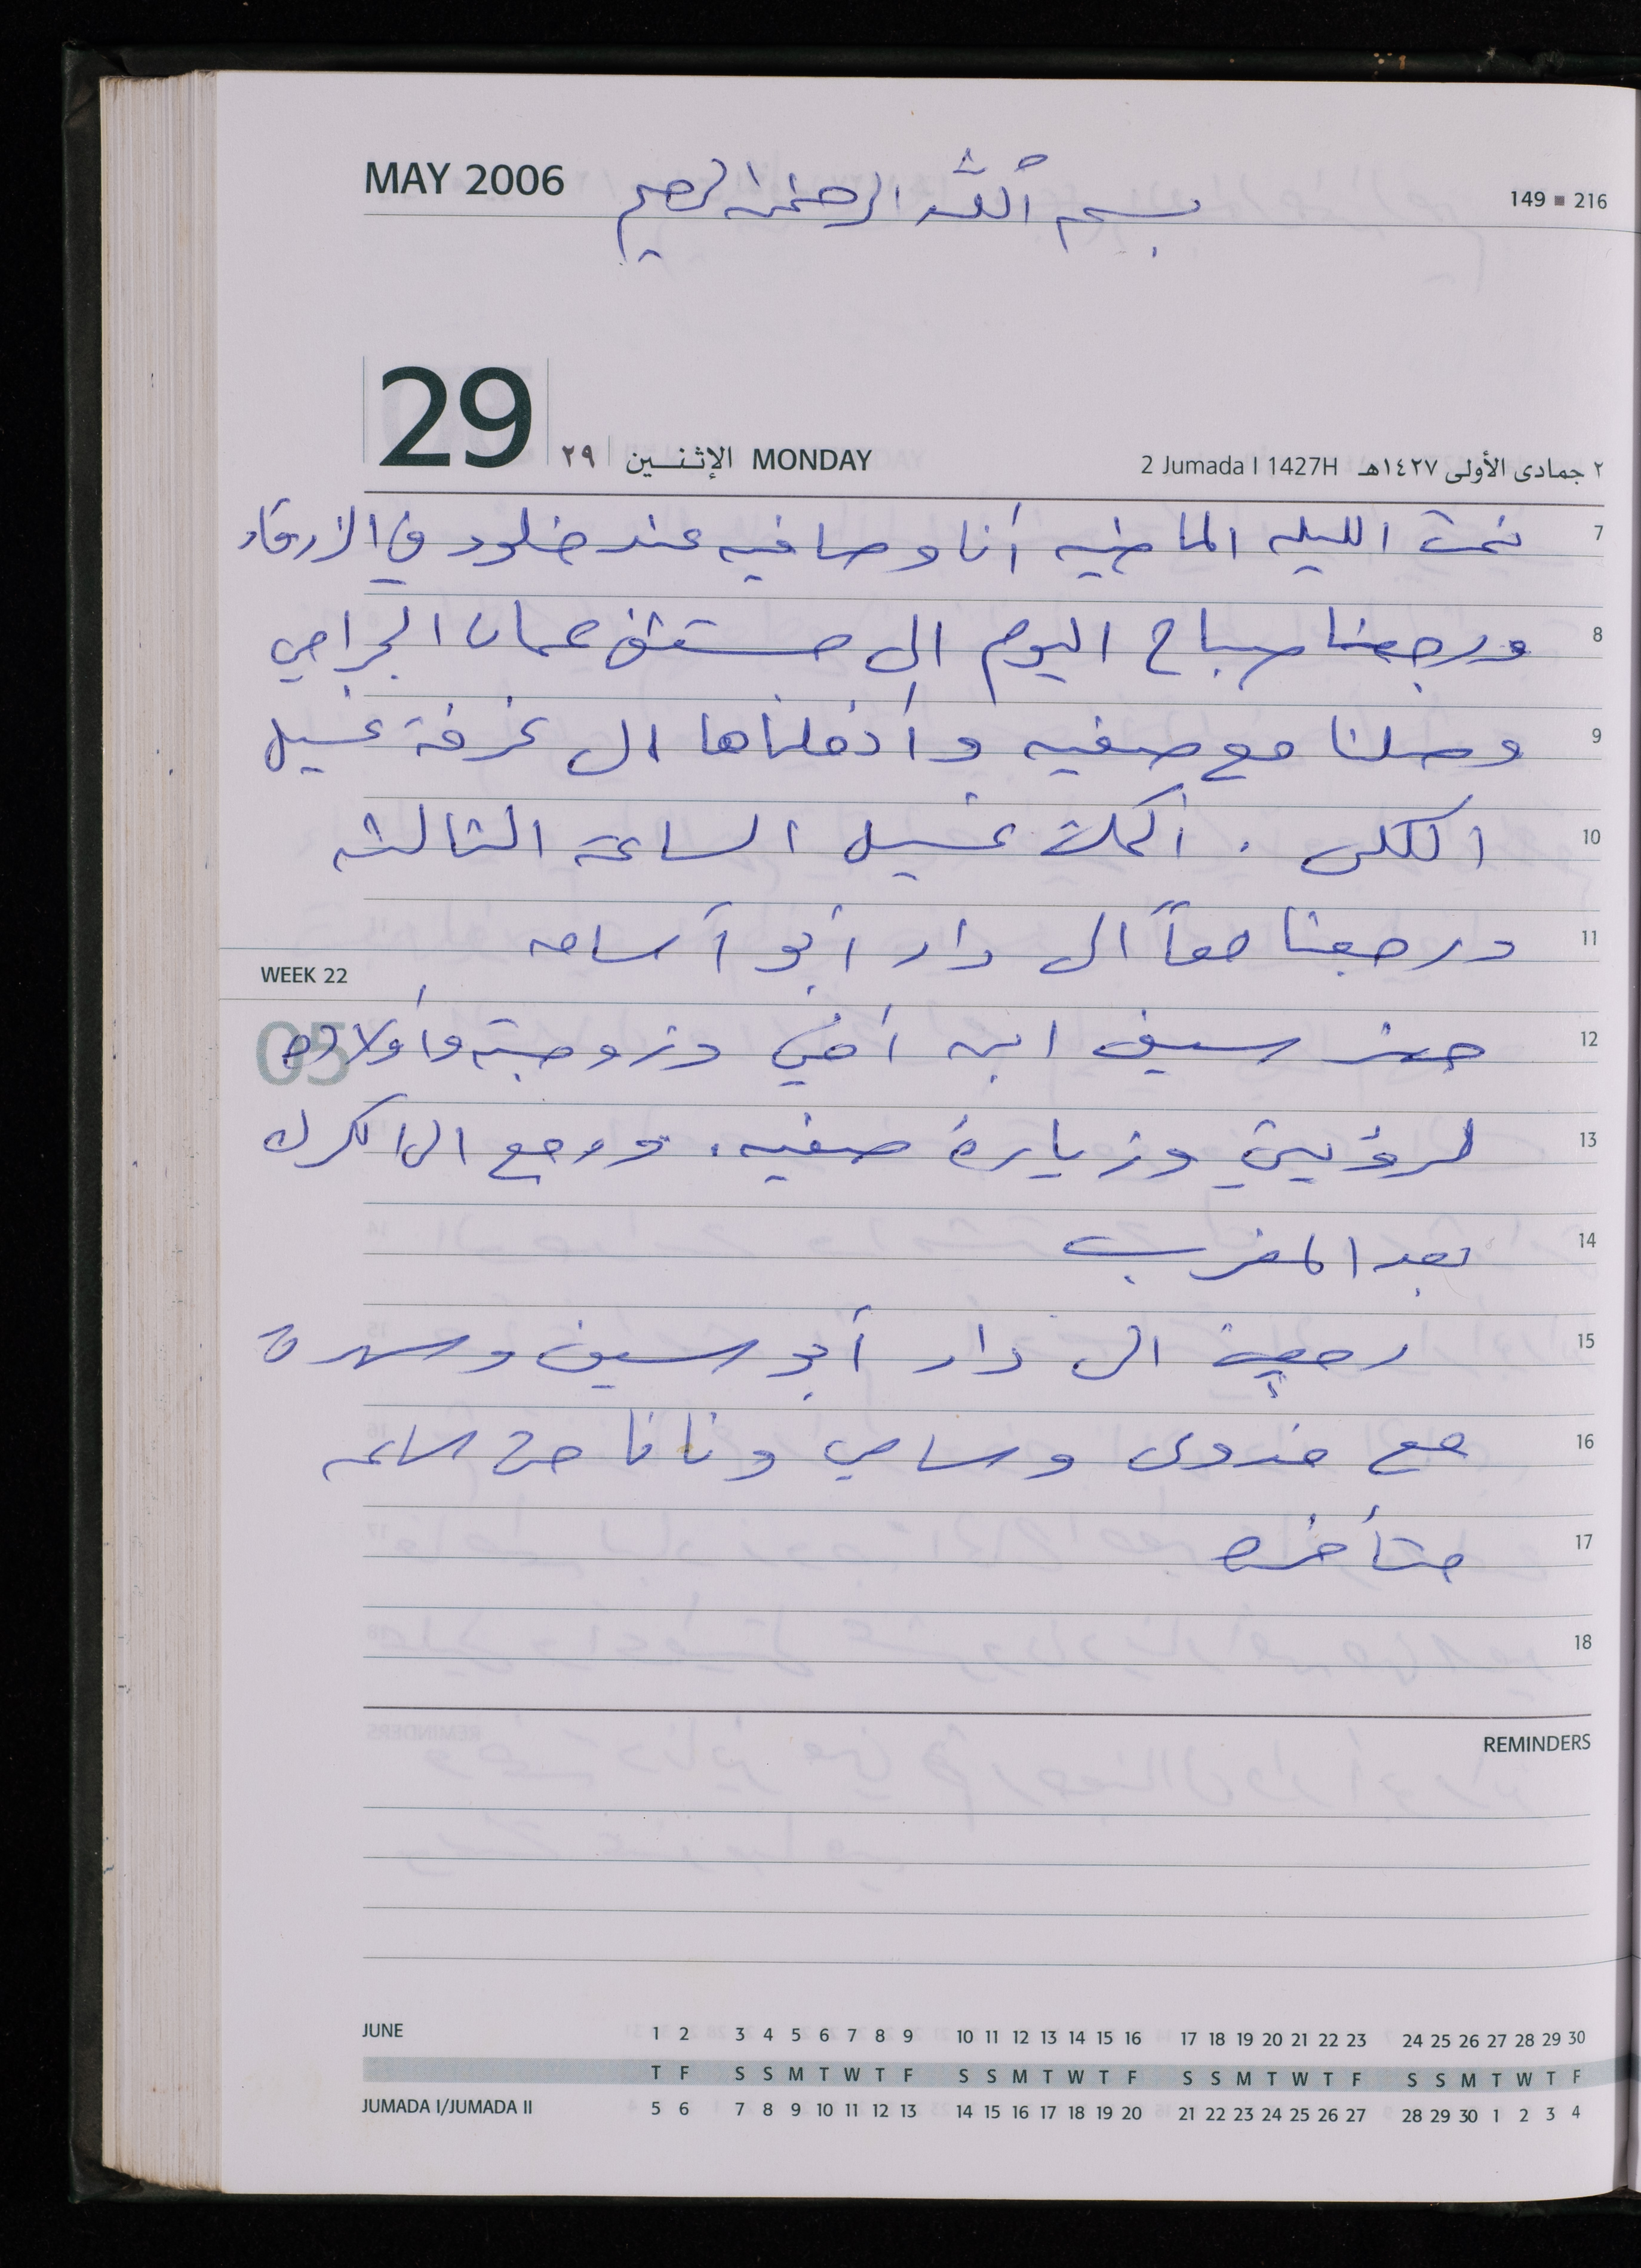 MAY 2006
بسم الله الرحمن الرحيم
149 ▪ 216
29
٢٩ الإثنـــين MONDAY
2 Jumada I 1427H ٢ جمادى الأولى ١٤٢٧هـ
7 نمت الليله الماضيه أنا وصافيه عند خلود في الزرقاء
8 ورجعنا صباح اليوم الى مستشفى عمان الجراحي
9 وصلنا مع صفيه وأدخلناها الى غرفة غسيل
10 الكلى . اكملت غسيل الساعة الثالثه
11 ورجعنا معاً الى دار أبو أسامه
WEEK 22
05
12 حضر سيف ابن أخي وزوجته وأولاده
13 لرؤيتي وزيارة صفيه . ورجع الى الكرك
14 بعد المغرب
15 رجعت الى دار أبو سيف وسهرة
16 مع فدوى وسامي ونانا حتى الساعه
17 متأخره
18
REMINDERS
JUNE 1 2 3 4 5 6 7 8 9 10 11 12 13 14 15 16 17 18 19 20 21 22 23 24 25 26 27 28 29 30
T F S S M T W T F S S M T W T F S S M T W T F S S M T W T F
JUMADA I/JUMADA II 5 6 7 8 9 10 11 12 13 14 15 16 17 18 19 20 21 22 23 24 25 26 27 28 29 30 1 2 3 4